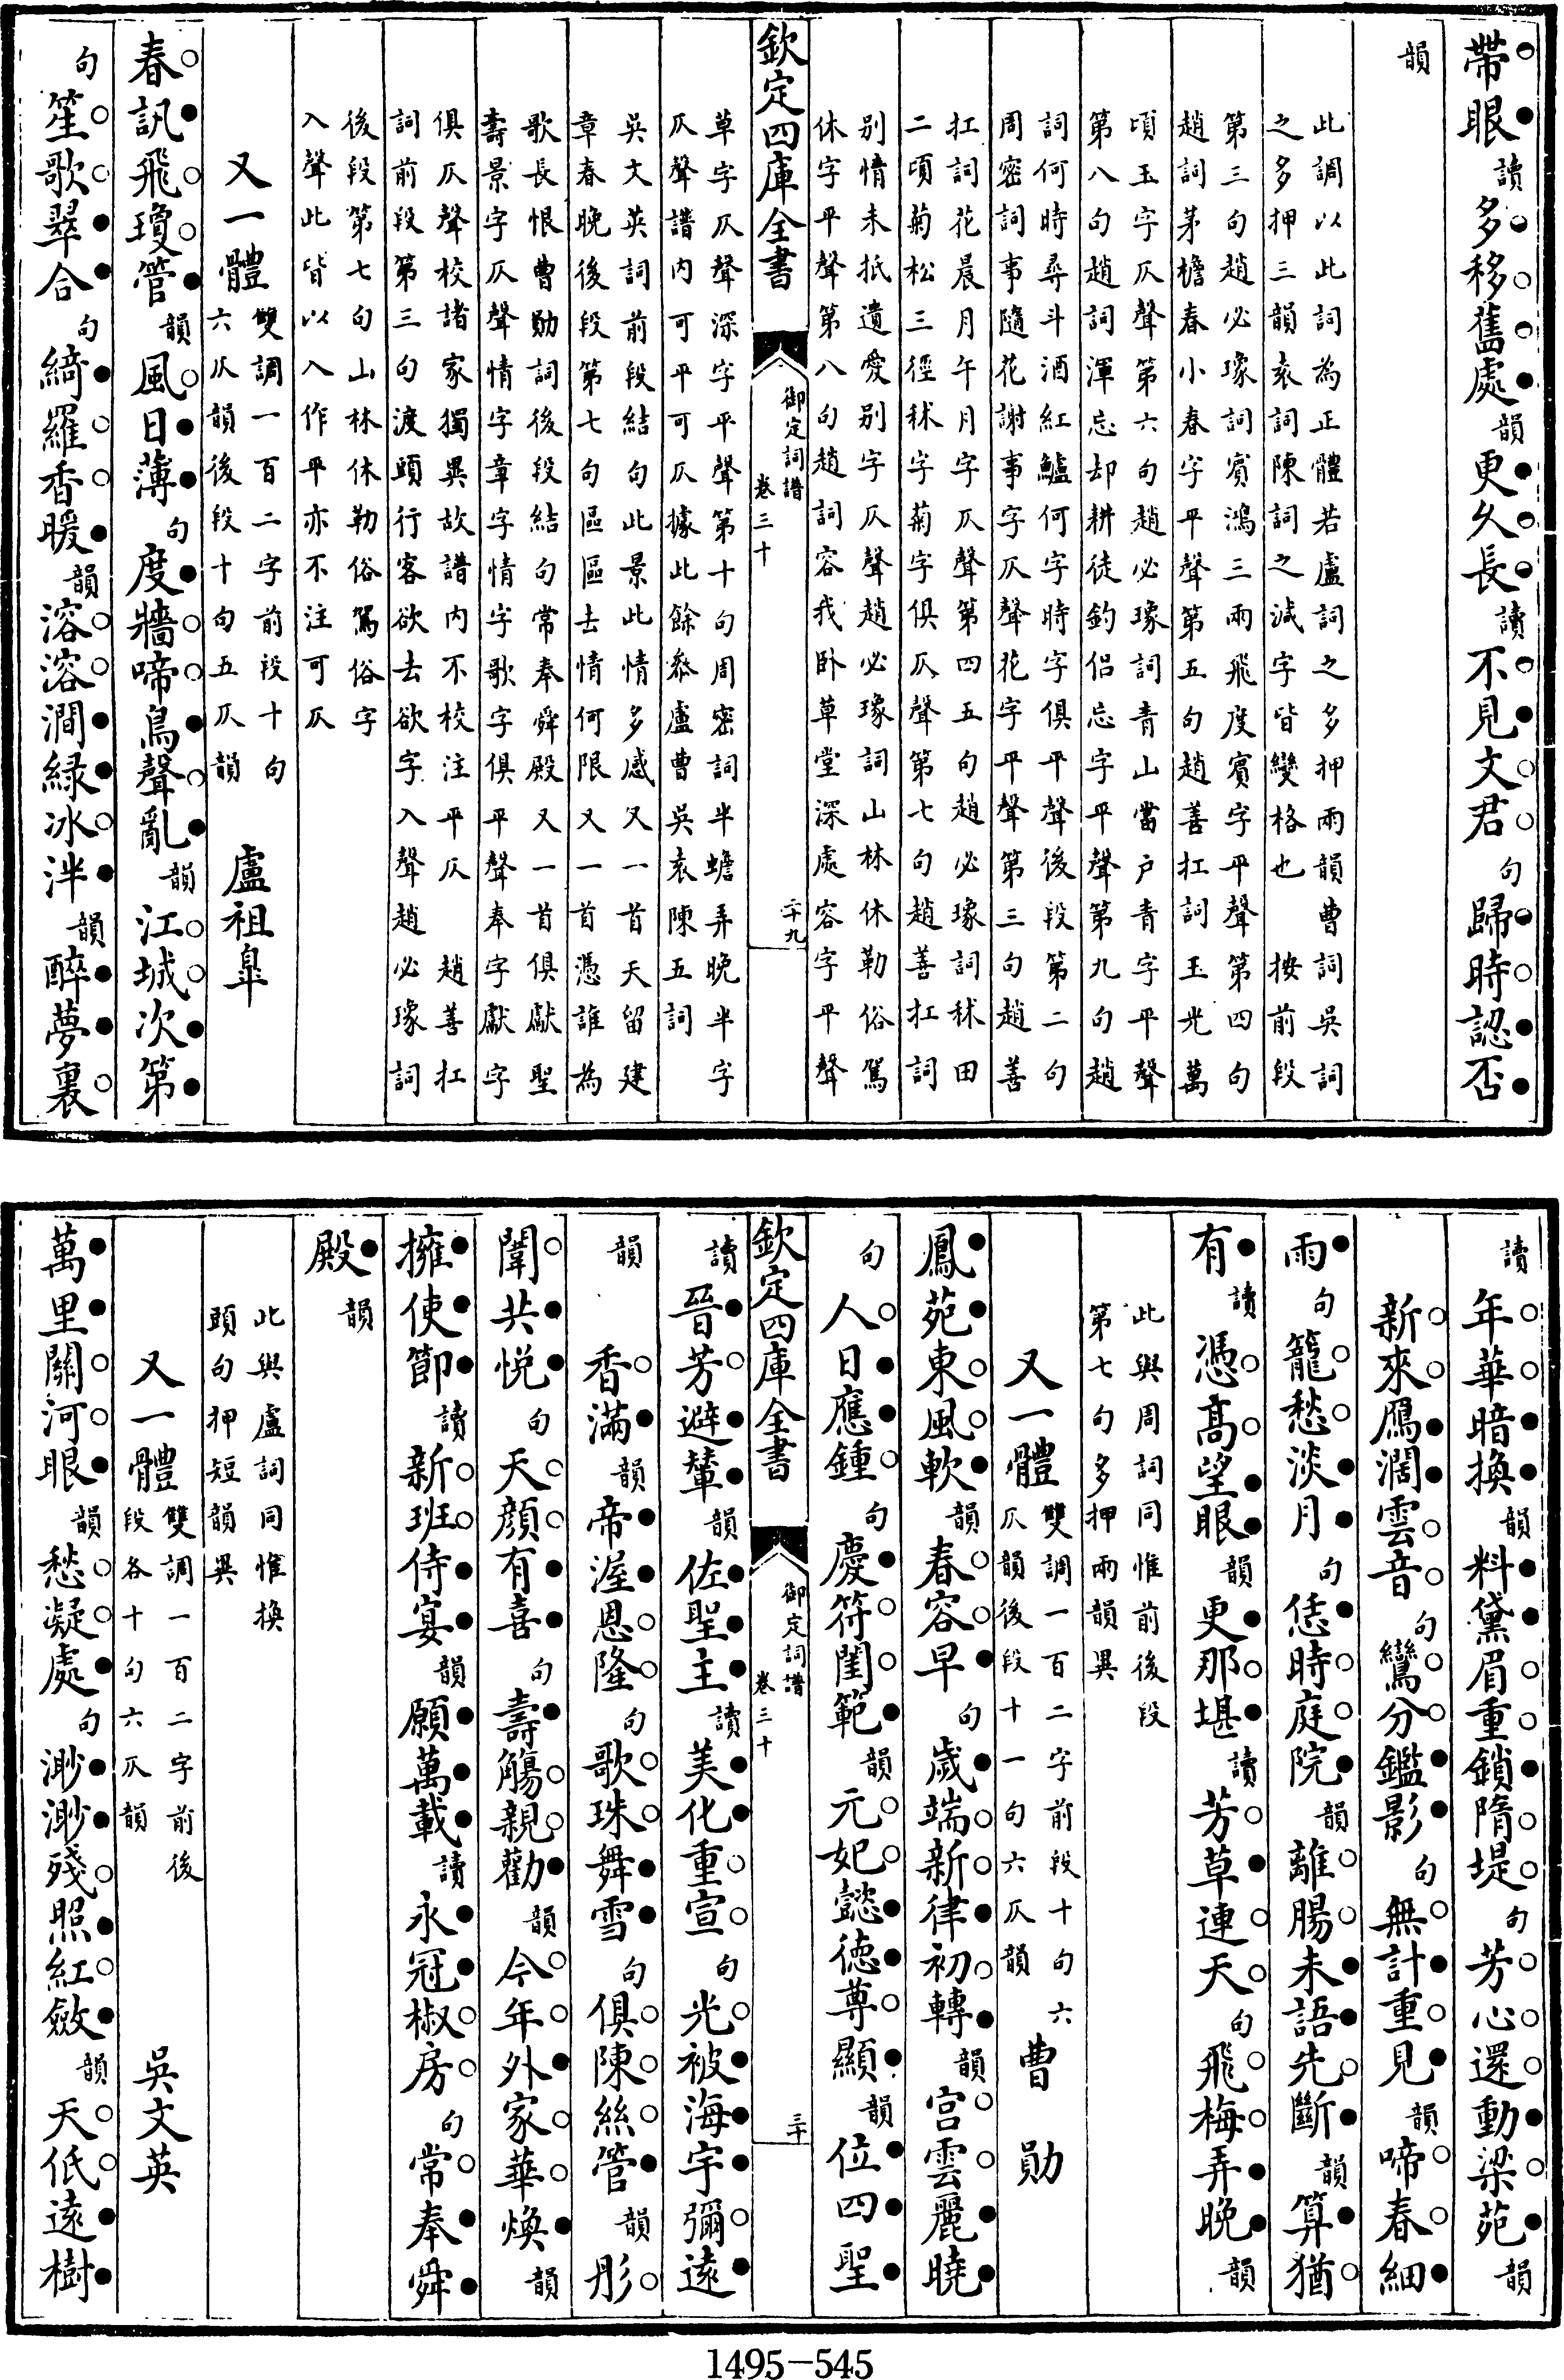 帶眼讀多移舊處韻更久長讀不見文君句歸時認否
韻
此調以此詞為正體若盧詞之多押兩韻曹詞吳詞
之多押三韻袁詞陳詞之減字皆變格也 按前段
第三句趙必瑑詞賓鴻三兩飛度賓字平聲第四句
趙詞茅檐春小春字平聲第五句趙善扛詞玉光萬
頃玉字仄聲第六句趙必瑑詞青山當户青字平聲
第八句趙詞渾忘却耕徒釣侣忘字平聲第九句趙
詞何時尋斗酒紅鱸何字時字俱平聲後段第二句
周密詞事隨花謝事字仄聲花字平聲第三句趙善
扛詞花晨月午月字仄聲第四五句趙必瑑詞秫田
二頃菊松三徑秫字菊字俱仄聲第七句趙善扛詞
别情未抵遺愛别字仄聲趙必瑑詞山林休勒俗駕
休字平聲第八句趙詞容我卧草堂深處容字平聲
欽定四庫全書 御定詞譜 卷三十 二十九
草字仄聲深字平聲第十句周密詞半蟾弄晚半字
仄聲譜内可平可仄據此餘叅盧曹吳袁陳五詞
吳文英詞前段結句此景此情多感又一首天留建
章春晚後段第七句區區去情何限又一首憑誰為
歌長恨曹勛詞後段結句常奉舜殿又一首俱獻聖
壽景字仄聲情字章字情字歌字俱平聲奉字獻字
俱仄聲校諸家獨異故譜内不校注平仄 趙善扛
詞前段第三句渡頭行客欲去欲字入聲趙必瑑詞
後段第七句山林休勒俗駕俗字
入聲此皆以入作平亦不注可仄
又一體 雙調一百二字前段十句
六仄韻後段十句五仄韻 盧祖臯
春訊飛瓊管韻風日薄句度牆啼鳥聲亂韻江城次第
句笙歌翠合句綺羅香暖韻溶溶澗緑冰泮韻醉夢裏
讀年華暗換韻料黛眉重鎖隋堤句芳心還動梁苑韻
新來鴈濶雲音句鸞分鑑影句無計重見韻啼春細
雨句籠愁淡月句恁時庭院韻離腸未語先斷韻算猶
有讀憑高望眼韻更那堪讀芳草連天句飛梅弄晚韻
此與周詞同惟前後段
第七句多押兩韻異
又一體 雙調一百二字前段十句六
仄韻後段十一句六仄韻 曹勛
鳳苑東風軟韻春容早句歲端新律初轉韻宫雲麗曉
句人日應鍾句慶符閨範韻元妃懿徳尊顯韻位四聖
欽定四庫全書 御定詞譜 卷三十 三十
讀晉芳避輦韻佐聖主讀美化重宣句光被海宇彌遠
韻香滿韻帝渥恩隆句歌珠舞雪句俱陳絲管韻彤
闈共悦句天顔有喜句壽觴親勸韻今年外家華煥韻
擁使節讀新班侍宴韻願萬載讀永冠椒房句常奉舜
殿韻
此與盧詞同惟換
頭句押短韻異
又一體 雙調一百二字前後
段各十句六仄韻 吳文英
萬里關河眼韻愁凝處句渺渺殘照紅斂韻天低逺樹
1495-545